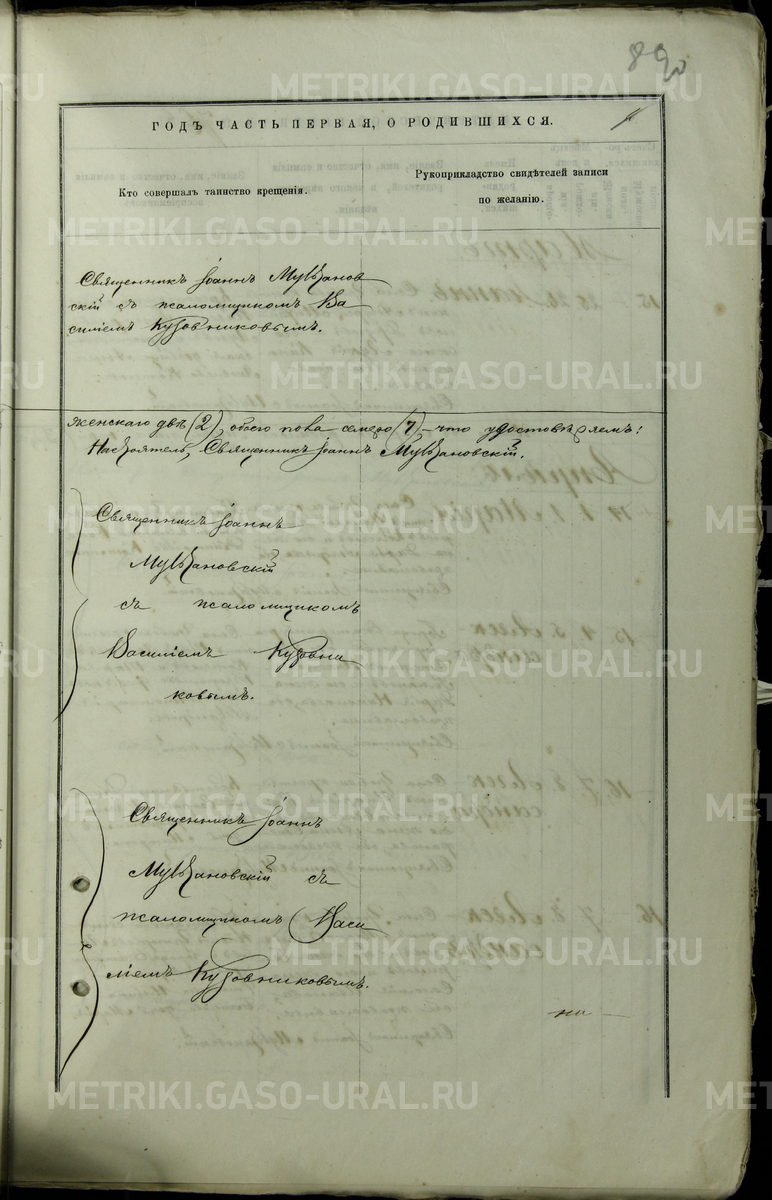 890
ГОДЪ ЧАСТЬ ПЕРВАЯ, О РОДИВШИХСЯ.
Кто совершалъ таинство крещенія.
Рукоприкладство свидѣтелей записи
по желанію.
Священникъ Іоаннъ
скій съ псаломщикомъ Ва
силіемъ Кузовниковымъ.
женскаго двѣ (2), обоего пола семеро (7) – что удостовѣряемъ:
Настоятель, Священникъ Іоаннъ
Священникъ Іоаннъ
съ псаломщикомъ
Василіемъ Кузовни
ковымъ.
Священникъ Іоаннъ
съ
псаломщикомъ Васи
ліемъ Кузовниковымъ.
METRIKI.GASO-URAL.RU